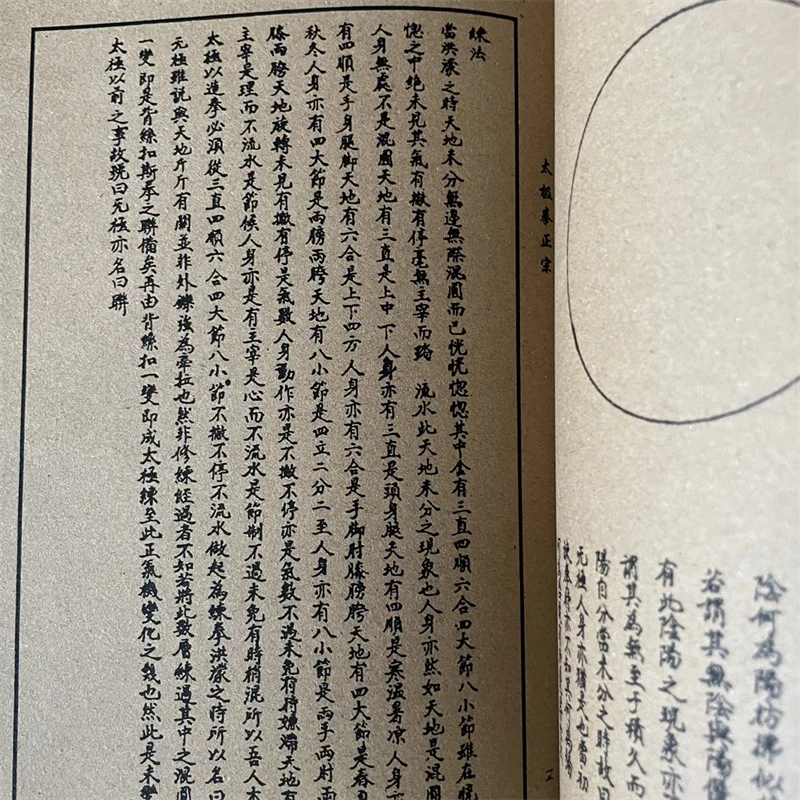 陰何為陽彷彿似
若謂其無陰無陽僅
有此陰陽之現象亦
謂其為無至于積久而
陽自分當未分之時故曰
无極人身亦猶未也當初
太极拳正宗
練法
當洪濛之時天地未分無邊無際混圓而已恍恍惚惚其中含有三直四順六合四大節八小節雖在恍
惚之中絕未見其氣有撤有停毫無主宰而踏 流水此天地未分之現象也人身亦然如天地是混圓
人身無處不是混圓天地有三直是上中下人身亦有三直是頭身腿天地有四順是寒溫暑凉人身亦
有四順是手身腿脚天地有六合是上下四方人身亦有六合是手脚肘膝膀胯天地有四大節是春夏
秋冬人身亦有四大節是兩膀兩胯天地有八小節是四立二分二至人身亦有八小節是兩手兩肘兩
膝兩膀天地旋轉未見有撤有停是氣數人身動作亦是不撤不停亦是氣數不過未免有時嫌滯天地有
主宰是理而不流水是節候人身亦是有主宰是心而不流水是節制不過未免有時稍混所以吾人本
太極以造拳必須從三直四順六合四大節八小節不撤不停不流水做起為練拳洪濛之時所以名曰
无極雖說與天地斤斤有關並非外鑠強為牽拉也然非修練經過者不如若將此數層練過其中之混圓
一變即是背絲扣斯拳之聯備矣再由背絲扣一變即成太極練至此正氣機變化之幾也然此是未變
太極以前之事故號曰无極亦名曰聯